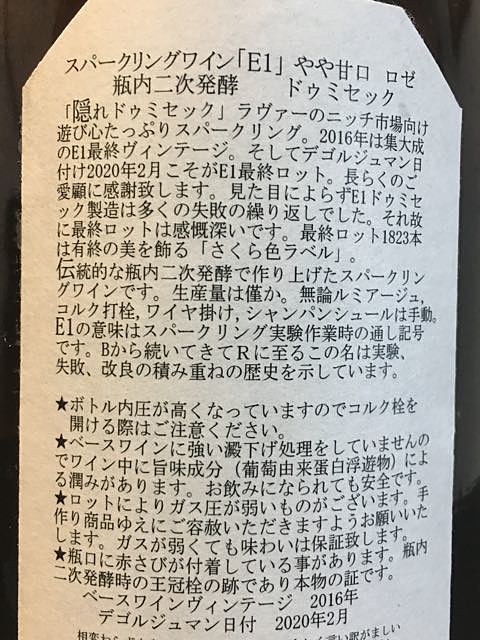 スパークリングワイン「E1」 やや甘口 ロゼ
瓶内二次発酵 ドゥミセック
「隠れドゥミセック」ラヴァーのニッチ市場向け
遊び心たっぷりスパークリング。2016年は集大成
のE1最終ヴィンテージ。そしてデゴルジュマン日
付け2020年2月こそがE1最終ロット。長らくのご
愛顧に感謝致します。見た目によらずE1ドゥミセ
ック製造は多くの失敗の繰り返しでした。それ故
に最終ロットは感慨深いです。最終ロット1823本
は有終の美を飾る「さくら色ラベル」。
伝統的な瓶内二次発酵で作り上げたスパークリン
グワインです。生産量は僅か。無論ルミアージュ,
コルク打栓, ワイヤ掛け, シャンパンシュールは手動。
E1の意味はスパークリング実験作業時の通し記号
です。Bから続いてきてRに至るこの名は実験、
失敗、改良の積み重ねの歴史を示しています。
★ボトル内圧が高くなっていますのでコルク栓を
開ける際はご注意ください。
★ベースワインに強い澱下げ処理をしていませんの
でワイン中に旨味成分（葡萄由来蛋白浮遊物）によ
る潤みがあります。お飲みになられても安全です。
★ロットによりガス圧が弱いものがございます。手
作り商品ゆえにご容赦いただきますようお願いいた
します。ガスが弱くても味わいは保証致します。
★瓶口に赤さびが付着している事があります。瓶内
二次発酵時の王冠栓の跡であり本物の証です。
ベースワインヴィンテージ 2016年
デゴルジュマン日付 2020年2月